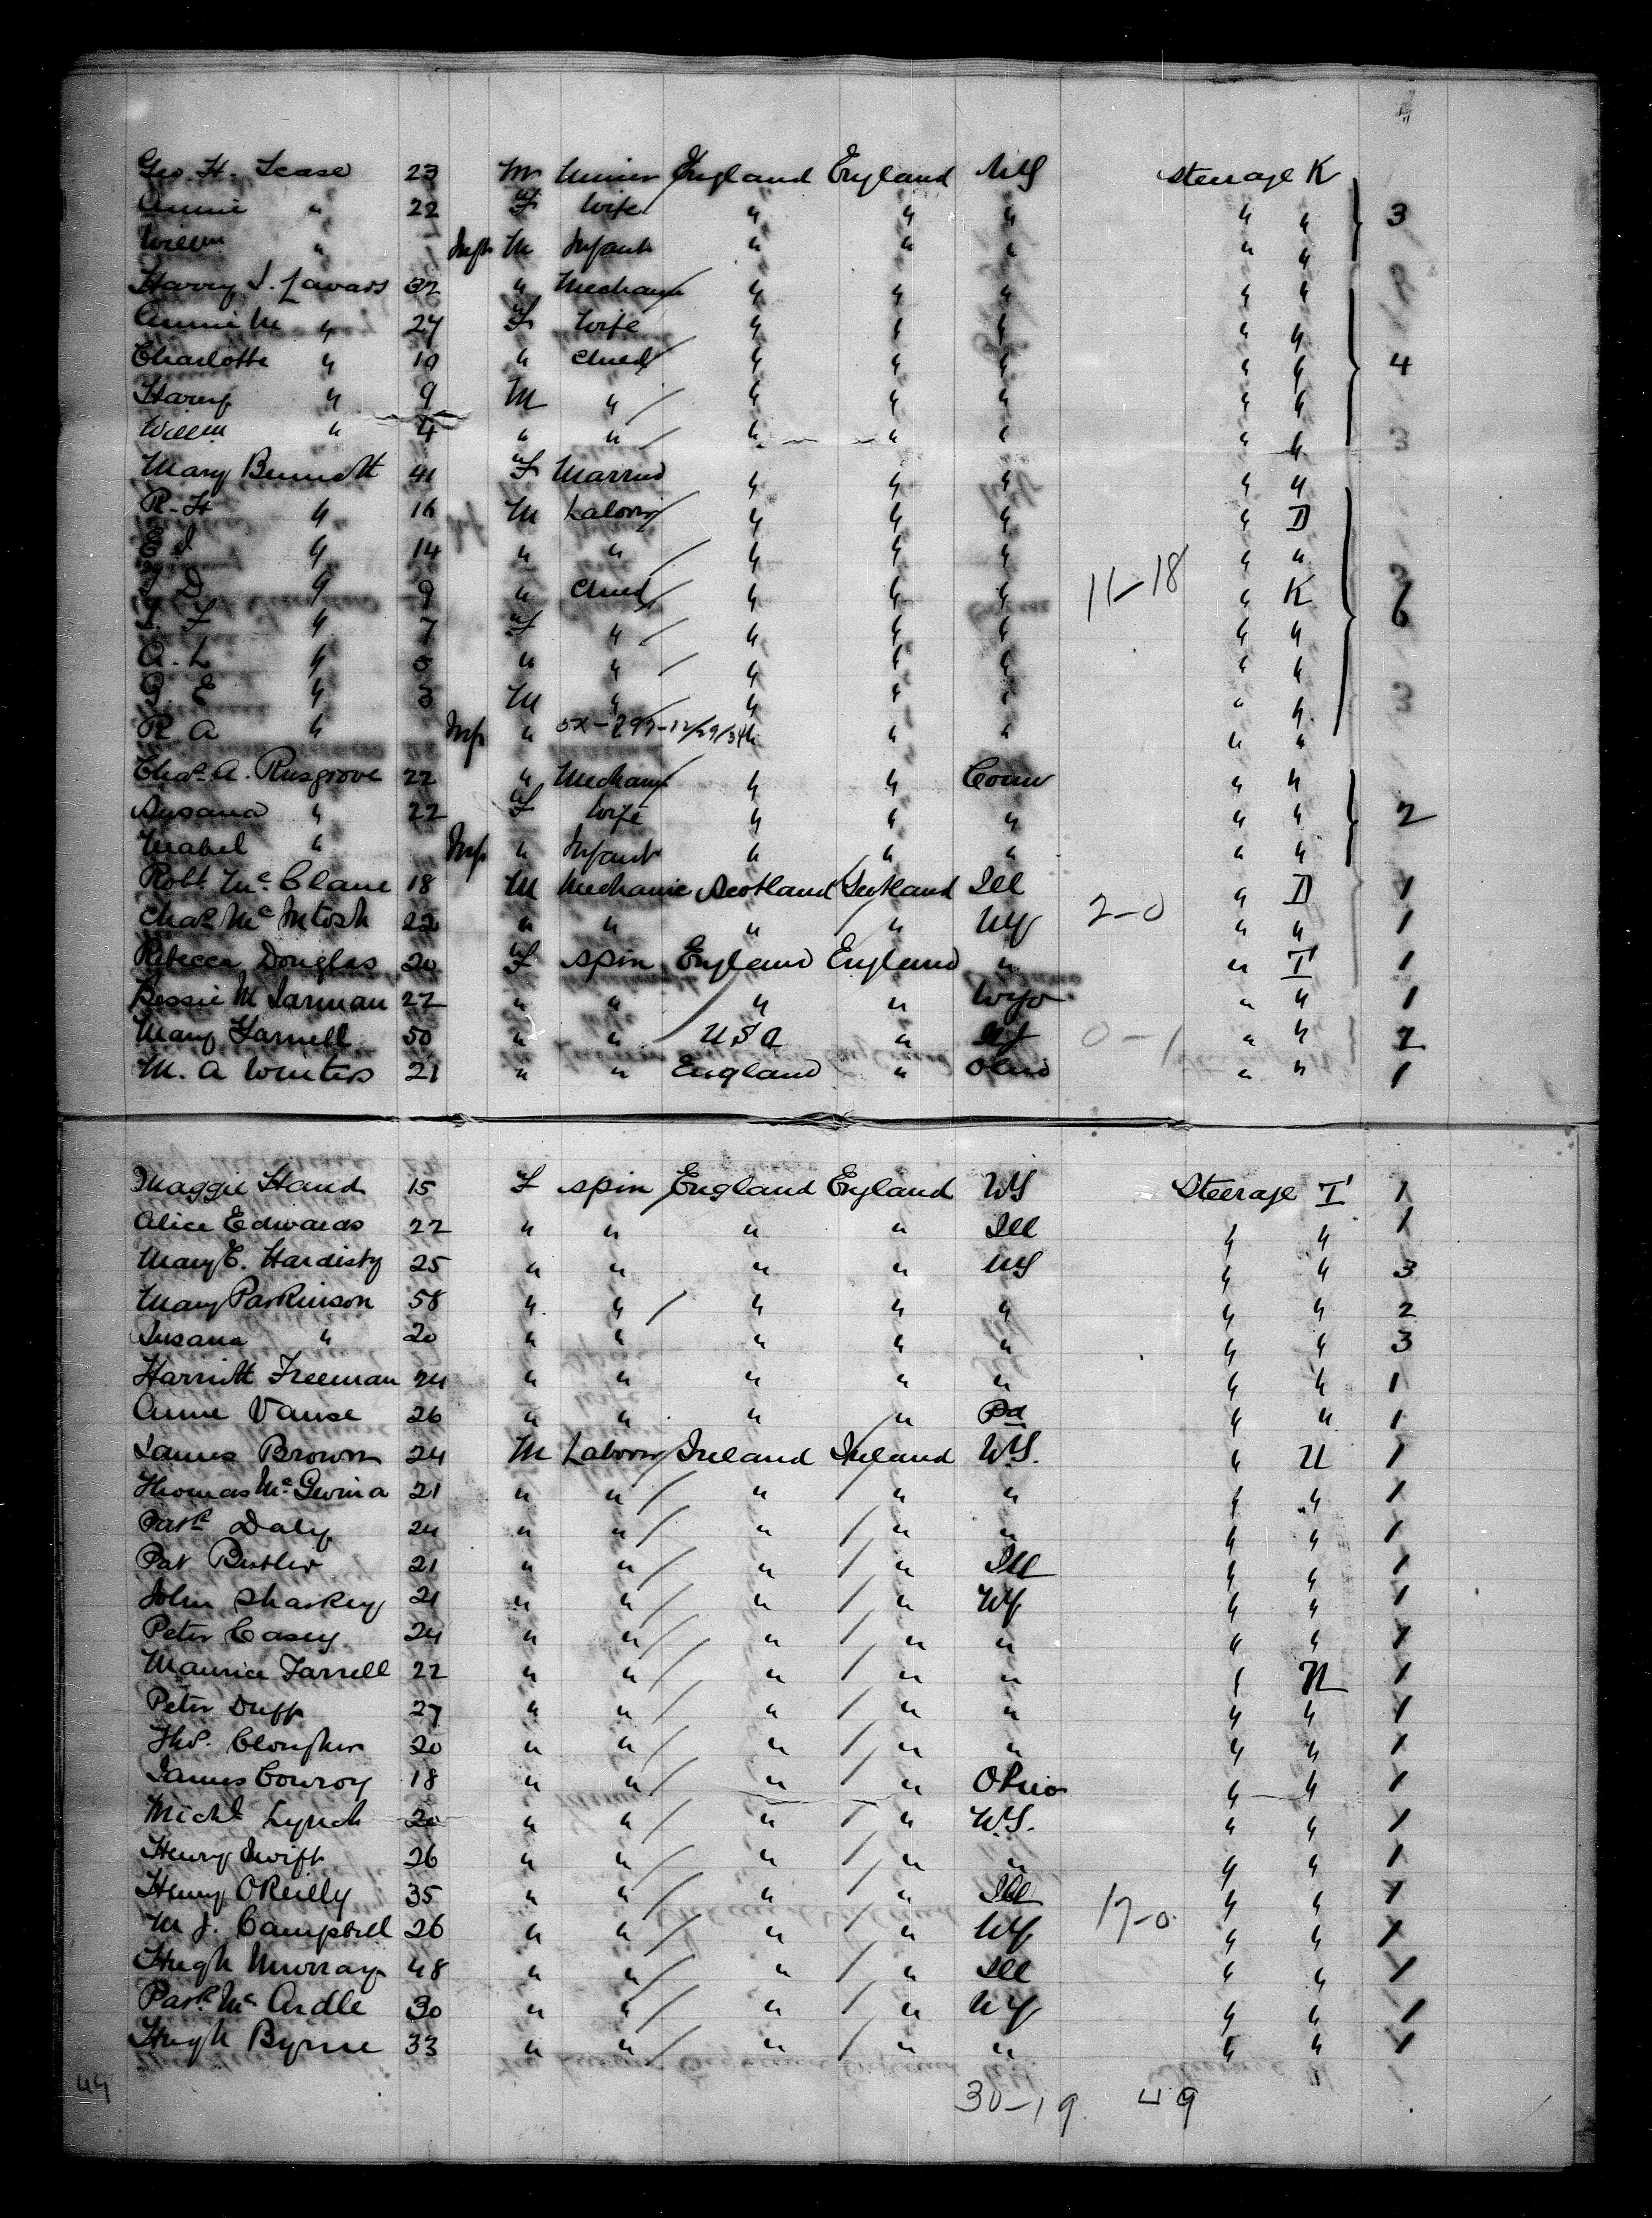 Geo. H. Lease 23 M Miner England England NY Steerage K
Annie " 22 F Wife " " " " " 3
Willm " Inft M Infant " " " " "
Harry J. Lavars 32 " Mechanic " " " " "
Annie M " 27 F Wife " " " " "
Charlotte " 10 " Child " " " " " 4
Harry " 9 M " " " " " "
Willm " 4 " " " " " " "
Mary Bennett 41 F Married " " " " "
R. H " 16 M Labourer " " " " D
E J " 14 " " " " " " "
D " 9 " Child " " " 11-18 " K 6
" 7 F " " " " " "
A. L " 5 " " " " " " "
E " 3 M " " " " " "
R A " Inf " 5X-295-12/29/34 " " " " "
Chas. A. Rusgrove 22 " Mechanic " " Conn " "
Susana " 22 F Wife " " " " " 2
Mabel " Inf " Infant " " " " "
Robt. Mc. Clane 18 M Mechanic Scotland Scotland Ill " D 1
Chas. Mc Intosh 22 " " " " NY 2-0 " " 1
Rebecca Douglas 20 F Spin England England " " T 1
Bessie M Jarman 22 " " " " Wyo " " 1
Mary Farnell 50 " " USA " NJ 0-1 " " 2
M. A Winters 21 " " England " Ohio " " 1
Maggie Hand 15 F Spin England England NY Steerage T 1
Alice Edwards 22 " " " " Ill " " 1
Mary E. Hardisty 25 " " " " NY " " 3
Mary Parkinson 58 " " " " " " " 2
Susana " 20 " " " " " " " 3
Harriett Freeman 24 " " " " " " " 1
Anne Vause 26 " " " " Pa " " 1
James Brown 24 M Labourer Ireland Ireland N.Y. " U 1
Thomas Mc. 21 " " " " " " " 1
Patk Daly 24 " " " " " " " 1
Pat Butler 21 " " " " Ill " " 1
John Sharkey 21 " " " " NY " " 1
Peter Casey 24 " " " " " " " 1
Maurice Farrell 22 " " " " " " U 1
Peter Duff 27 " " " " " " " 1
Thos. Clougher 20 " " " " " " " 1
James Conroy 18 " " " " Ohio " " 1
Michl Lynch 20 " " " " N.Y. " " 1
Henry Swift 26 " " " " " " " 1
Henry OReilly 35 " " " " Ill 17-0 " " 1
M J. Campbell 26 " " " " NY " " 1
Hugh Murray 48 " " " " Ill " " 1
Patk. Mc Ardle 30 " " " " NY " " 1
Hugh Byrne 33 " " " " " " " 1
49 30-19 49